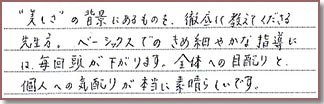 "美しさ"の背景にあるものを、徹底的に教えてくださる
先生方。ベーシックスでのきめ細やかな指導に
は、毎回頭が下がります。全体への目配りと、
個人への気配りが本当に素晴らしいです。